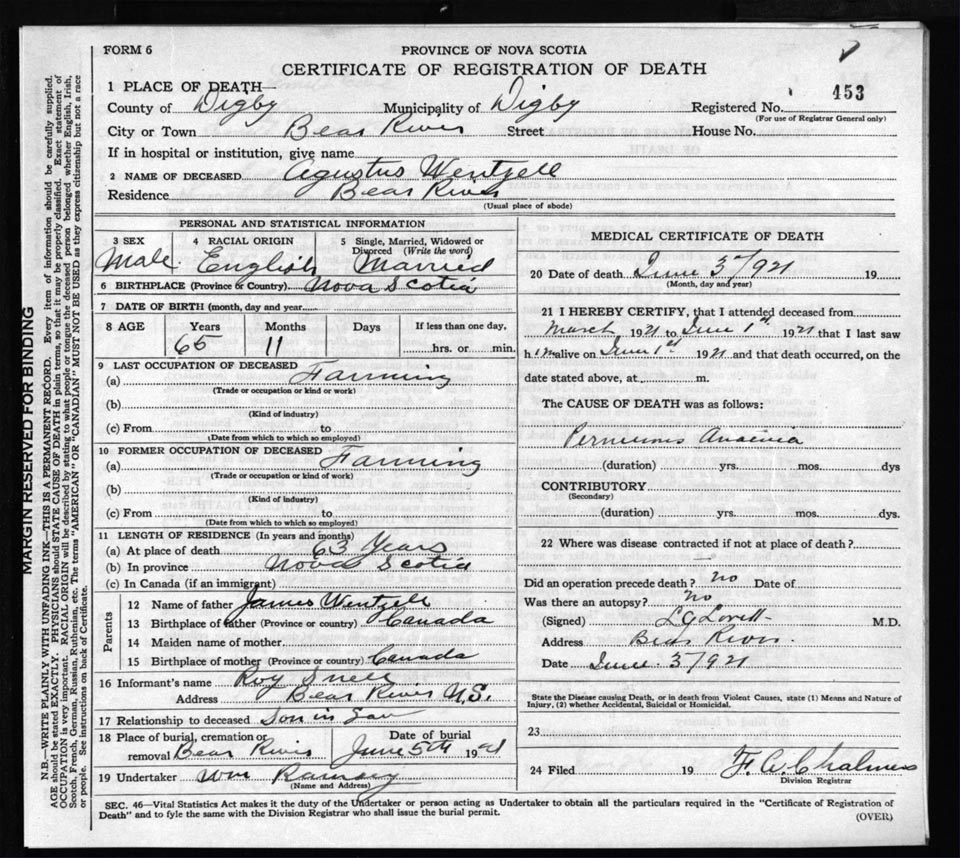 FORM 6
PROVINCE OF NOVA SCOTIA
CERTIFICATE OF REGISTRATION OF DEATH
1 PLACE OF DEATH—
County of Digby Municipality of Digby Registered No. 453
(For use of Registrar General only)
City or Town Bear River Street House No.
If in hospital or institution, give name
2 NAME OF DECEASED Agustus Wentzell
Residence Bear River
(Usual place of abode)
PERSONAL AND STATISTICAL INFORMATION
3 SEX 4 RACIAL ORIGIN 5 Single, Married, Widowed or
Divorced (Write the word)
Male. English Married
6 BIRTHPLACE (Province or Country) Nova Scotia
7 DATE OF BIRTH (month, day and year)
8 AGE Years Months Days If less than one day,
65 11 hrs. or min.
9 LAST OCCUPATION OF DECEASED
(a) Farming
(Trade or occupation or kind or work)
(b)
(Kind of industry)
(c) From to
(Date from which to which so employed)
10 FORMER OCCUPATION OF DECEASED
(a) Farming
(Trade or occupation or kind of work)
(b)
(Kind of industry)
(c) From to
(Date from which to which so employed)
11 LENGTH OF RESIDENCE (In years and months)
(a) At place of death 63 Years
(b) In province Nova Scotia
(c) In Canada (if an immigrant)
Parents
12 Name of father James Wentzell
13 Birthplace of father (Province or country) Canada
14 Maiden name of mother
15 Birthplace of mother (Province or country) Canada
16 Informant's name Roy Snell
Address Bear River N.S.
17 Relationship to deceased Son in Law
18 Place of burial, cremation or Date of burial
removal Bear River June 5th 1921
19 Undertaker Wm Ramsay
(Name and Address)
MEDICAL CERTIFICATE OF DEATH
20 Date of death June 3/921 19
(Month, day and year)
21 I HEREBY CERTIFY, that I attended deceased from
March 1921 to June 1st 1921 that I last saw
him alive on June 1st 1921 and that death occurred, on the
date stated above, at m.
The CAUSE OF DEATH was as follows:
Pernicious Anaemia
(duration) yrs. mos. dys
CONTRIBUTORY
(Secondary)
(duration) yrs. mos. dys.
22 Where was disease contracted if not at place of death?
Did an operation precede death? no Date of
Was there an autopsy? no
(Signed) L G Lovett M.D.
Address Bear River.
Date June 3/921
State the Disease causing Death, or in death from Violent Causes, state (1) Means and Nature of
Injury, (2) whether Accidental, Suicidal or Homicidal.
23
24 Filed 19 F. A. Chalmers
Division Registrar
SEC. 46—Vital Statistics Act makes it the duty of the Undertaker or person acting as Undertaker to obtain all the particulars required in the "Certificate of Registration of
Death" and to fyle the same with the Division Registrar who shall issue the burial permit.
(OVER)
MARGIN RESERVED FOR BINDING
N.B.—WRITE PLAINLY WITH UNFADING INK—THIS IS A PERMANENT RECORD. Every item of information should be carefully supplied.
AGE should be stated EXACTLY. PHYSICIANS should STATE CAUSE OF DEATH in plain terms, so that it may be properly classified. Exact statement of
OCCUPATION is very important. RACIAL ORIGIN will be described by stating to what people or tongue the deceased person belonged whether English, Irish,
Scotch, French, German, Russian, Ruthenian, etc. The terms "AMERICAN" OR "CANADIAN" MUST NOT BE USED as they express citizenship but not a race
or people. See instructions on back of Certificate.